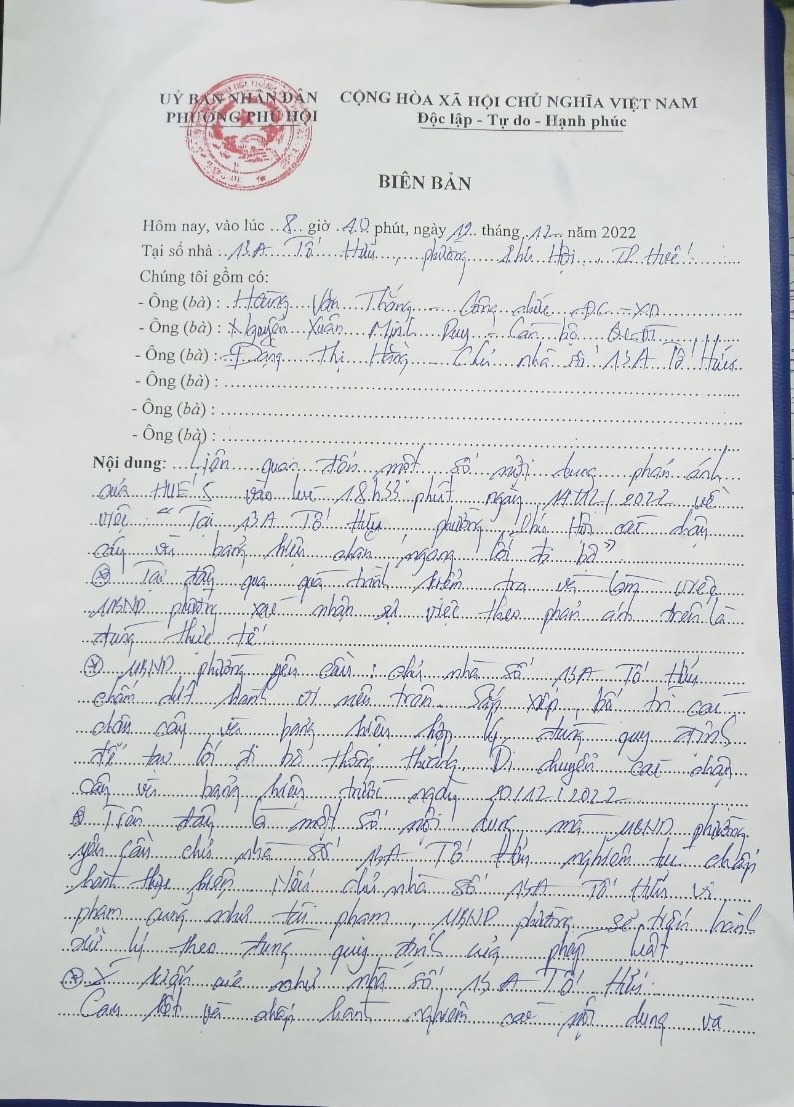 UỶ BAN NHÂN DÂN
PHƯỜNG PHÚ HỘI
CỘNG HÒA XÃ HỘI CHỦ NGHĨA VIỆT NAM
Độc lập - Tự do - Hạnh phúc
BIÊN BẢN
Hôm nay, vào lúc 8 giờ 40 phút, ngày 19 tháng 12 năm 2022
Tại số nhà 13A Tố Hữu, phường Phú Hội, TP Huế
Chúng tôi gồm có:
- Ông (bà) : Hoàng Văn Thắng - Công chức ĐC-XD
- Ông (bà) : Nguyễn Xuân Minh Duy - Cán bộ QLĐT
- Ông (bà) : Đặng Thị Hằng Chủ nhà số 13A Tố Hữu
- Ông (bà) :
- Ông (bà) :
- Ông (bà) :
Nội dung: Liên quan đến một số nội dung phản ánh
của HUẾ S vào lúc 18h33 phút ngày 14/12/2022 về
việc "Tại 13A Tố Hữu phường Phú Hội các chậu
cây và bảng hiệu chắn ngang lối đi bộ".
Tại đây qua quá trình kiểm tra và làm việc
UBND phường xác nhận sự việc theo phản ánh trên là
đúng thực tế.
UBND phường yêu cầu: chủ nhà số 13A Tố Hữu
chấm dứt hành vi nêu trên. Sắp xếp, bố trí các
chậu cây và bảng hiệu hợp lý, đúng quy định
để tạo lối đi bộ thông thoáng. Di chuyển các chậu
cây và bảng hiệu trước ngày 20/12/2022
Trên đây là một số nội dung mà UBND phường
yêu cầu chủ nhà số 13A Tố Hữu nghiêm túc chấp
hành thực hiện. Nếu chủ nhà số 13A Tố Hữu vi
phạm cũng như tái phạm, UBND phường sẽ tiến hành
xử lý theo đúng quy định của pháp luật.
Ý kiến của chủ nhà số 13A Tố Hữu:
Cam kết và chấp hành nghiêm các nội dung và